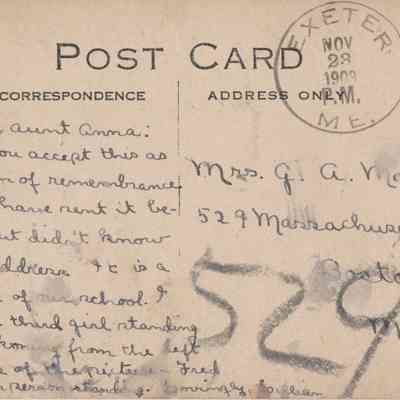 POST CARD
EXETER,
NOV
23
1909
P.M.
ME.
CORRESPONDENCE
ADDRESS ONLY
aunt Anna:
you accept this as
of remembrance
have sent it be-
but didn't know
address. It is a
of our school. I
third girl standing
from the left
of the picture - Fred
person standing. Lovingly, Lillian
Mrs. G. A. Mo
529 Massachuse
Bosto
M
529